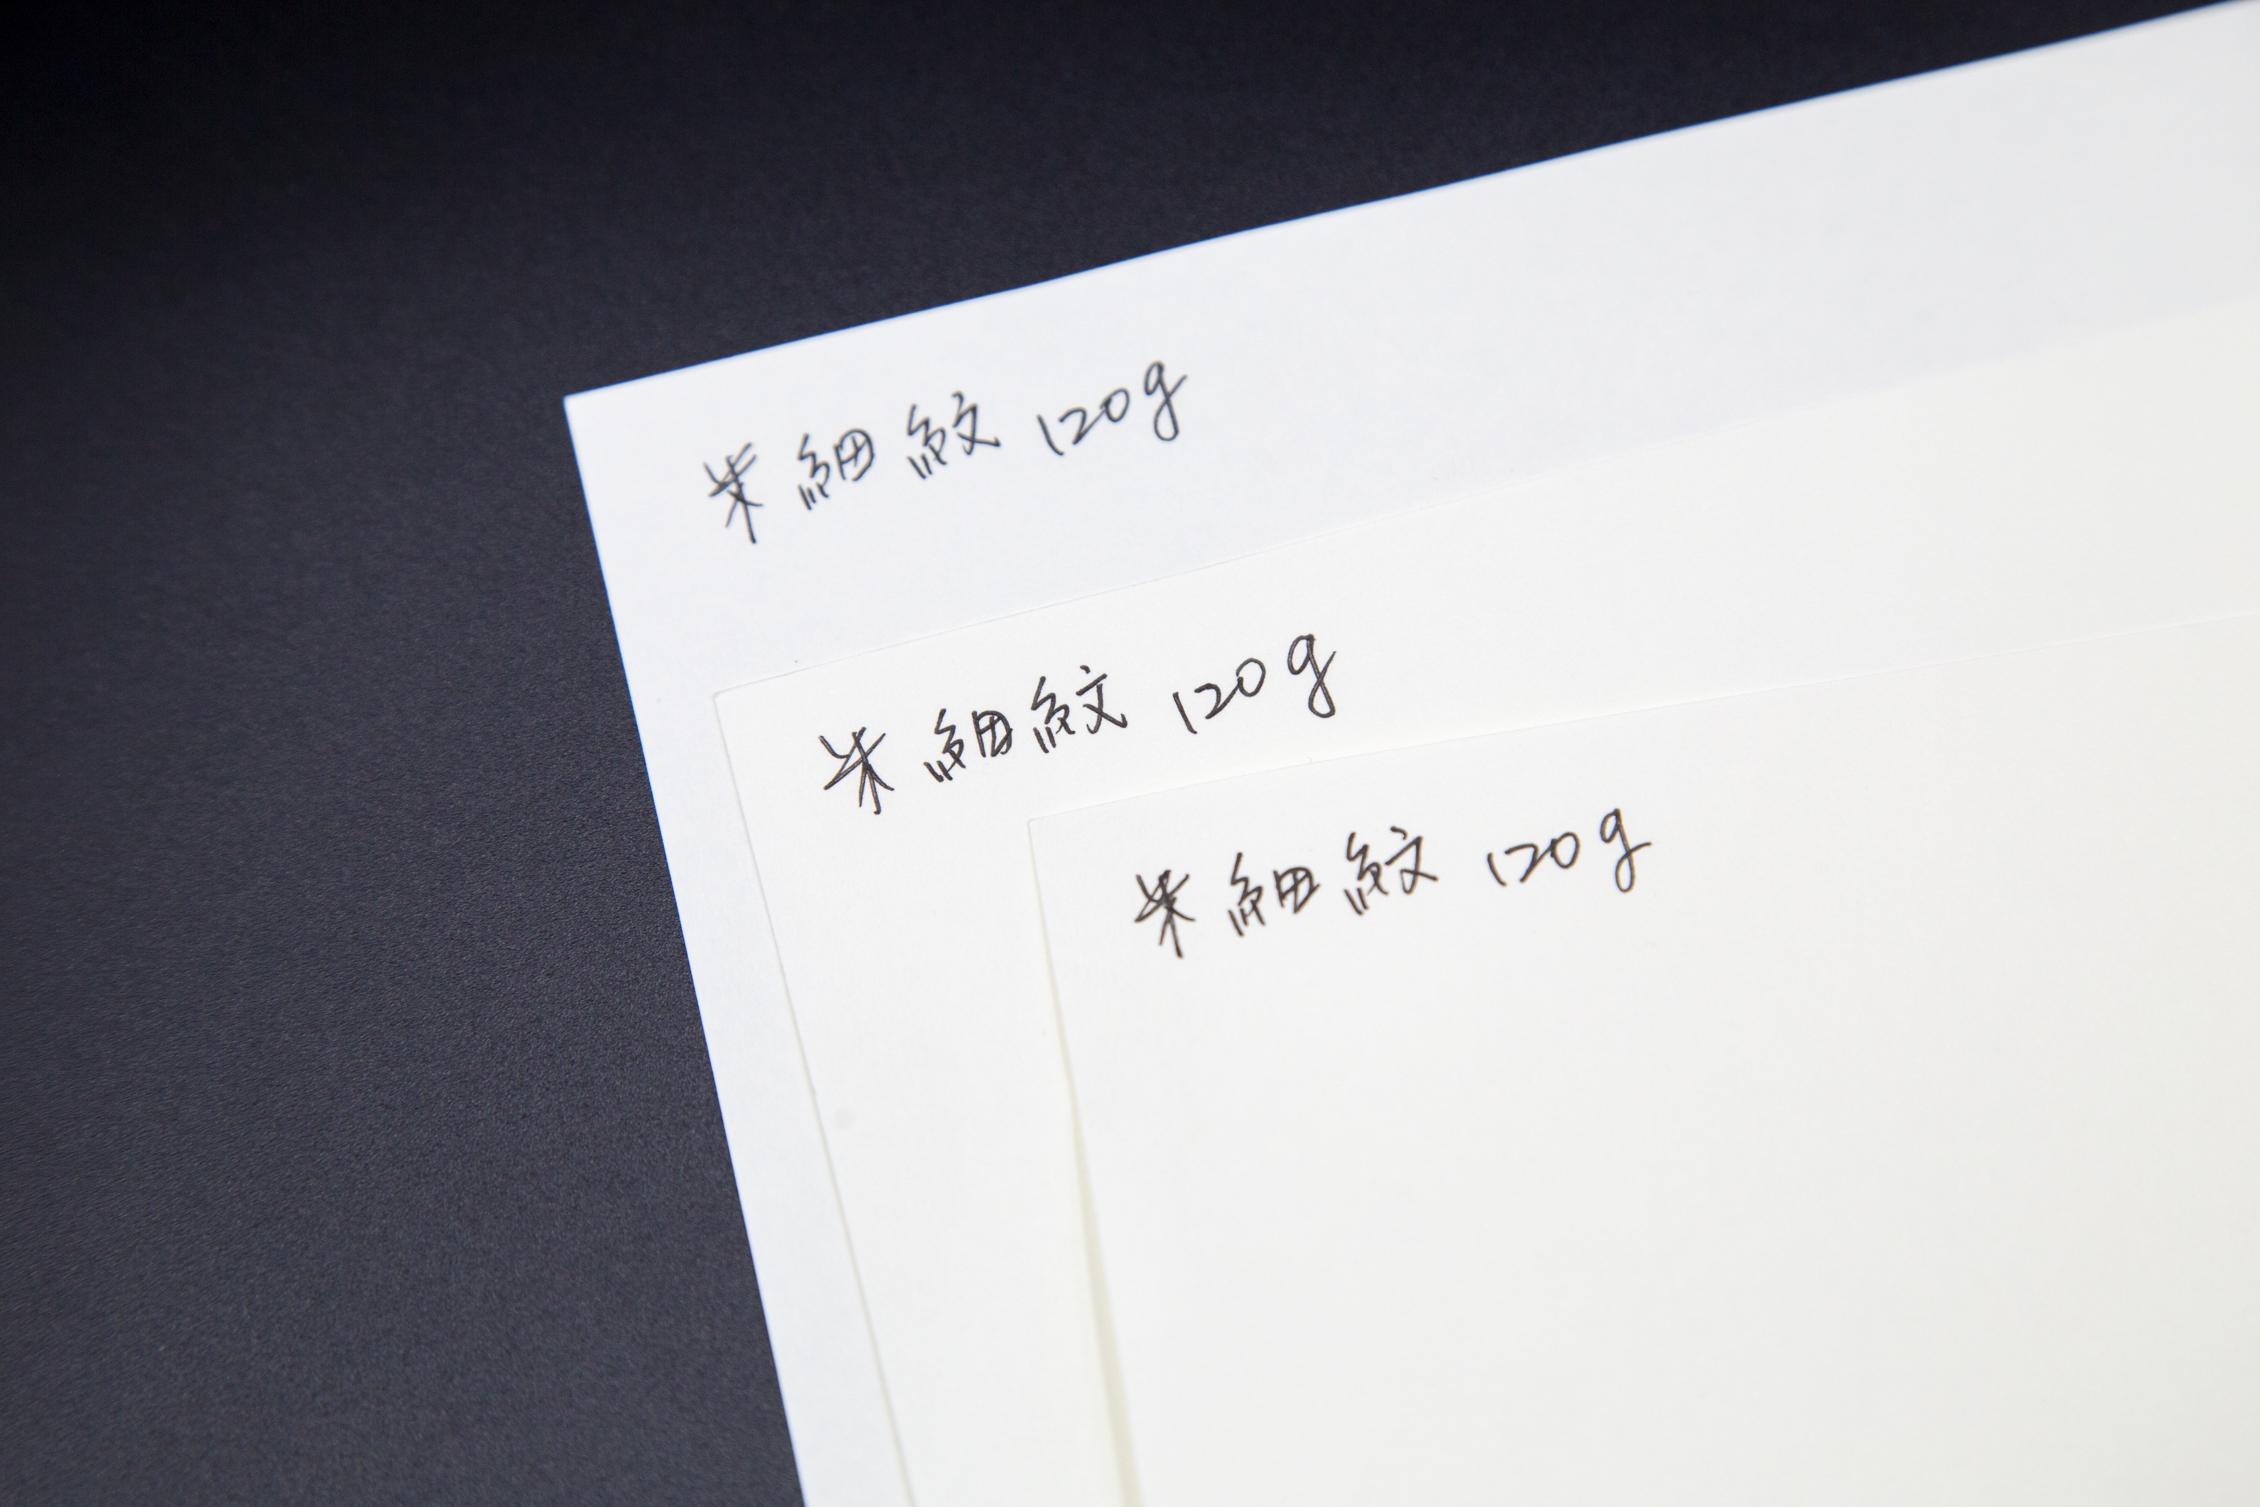 米細紋 120g
米細紋 120g
米細紋 120g